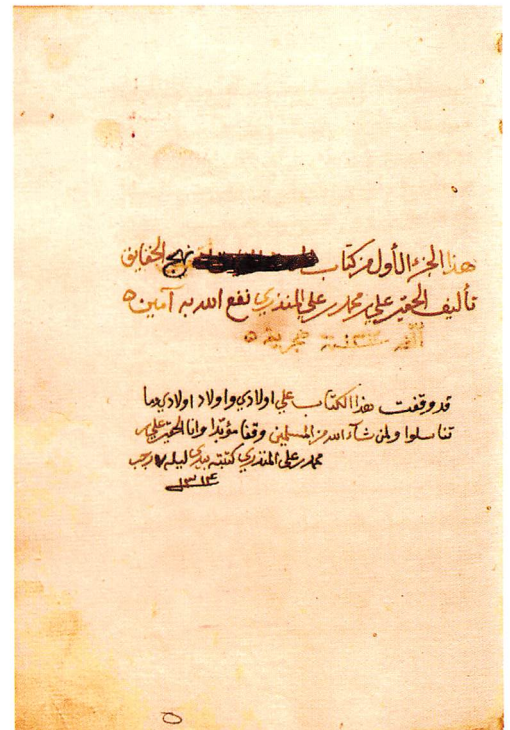 هذا الجزء الأول من كتاب نهج الحقايق
تأليف الحقير علي بن محمد بن علي المنذري نفع الله به آمين ه
سنة هجرية ه
قد وقفت هذا الكتاب على اولادي واولاد اولادي وما
تناسلوا ولمن شآء الله من المسلمين وقفا مؤبدا وانا الحقير علي بن
محمد بن علي المنذري كتبته بيدي ليلة ٧ رجب
١٣١٤